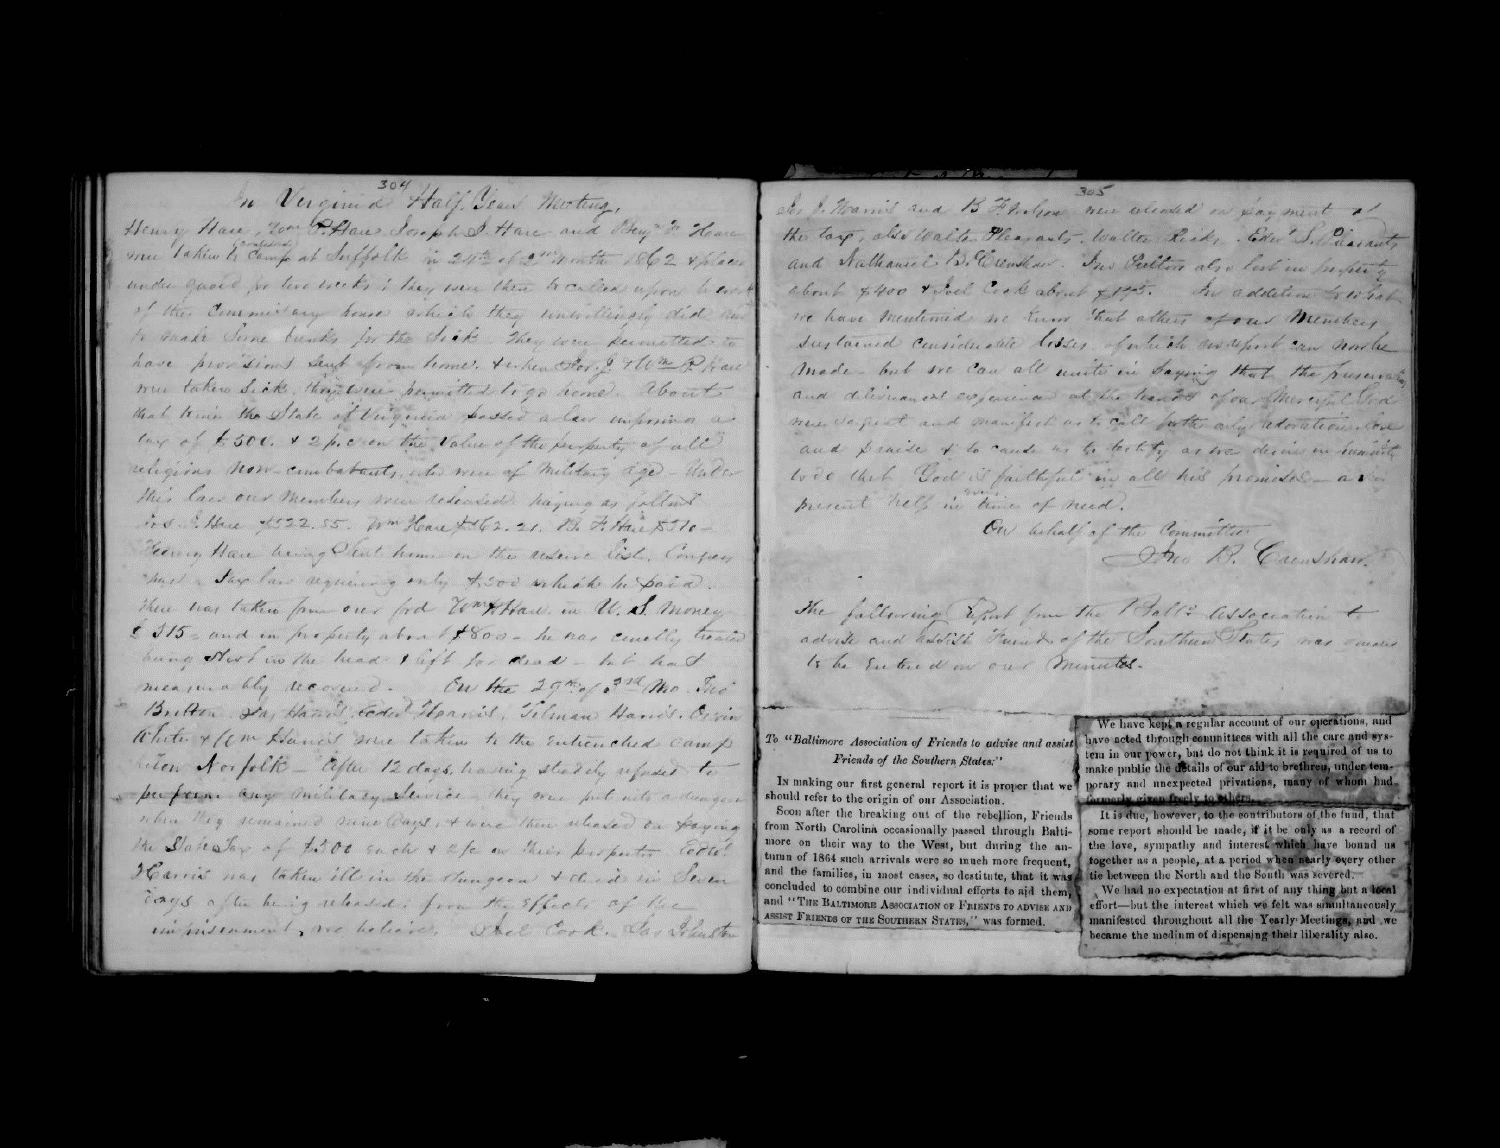 304
In Virginia Half Years Meeting,
Henry Hare, Wm P. Hare Joseph J. Hare and Benjn F Hare
were taken to Camp at Suffolk in 24th of 2nd month 1862 & placed
under guard for two weeks; they were then called upon to work
at the Commissary house which they unwillingly did and
to make some bunks for the Sick. They were permitted to
have provisions sent from home, & when Jos. J. & Wm P. Hare
were taken sick, they were permitted to go home. About
that time the State of Virginia passed a law imposing a
tax of $500. & 2 p.c on the value of the property of all
religious non-combatants, who were of Military age - Under
this law our Members were released paying as follows
Jos. J. Hare $522.55. Wm Hare $562.21. B. F. Hare $510-
Henry Hare being sent home on the reserve list. Congress
had a Tax law requiring only $500 which he paid.
There was taken from our frd Wm Hare in U. S. Money
$315= and in property about $800- he was cruelly treated
being shot in the head & left for dead - but had
measurably recovered. On the 29th of 3rd Mo. Jno
Bretton, Jas Harris, Edwd Harris, Tilman Harris, Orvin
White & Wm Harris were taken to the entrenched camp
Norfolk - After 12 days, having steadily refused to
perform any military service they were put into a dungeon
where they remained nine days, & were then released on paying
the State Tax of $500 each & 2 p/c on their property Edwd
Harris was taken ill in the dungeon & died in Seven
days after being released: from the effects of the
imprisonment, we believe. Joel Cook. Jas Johnston
305
Jos J. Harris and B F were released on payment of
the tax, also Walter Pleasants, Walter Ricks, Edwd S. Pleasants
and Nathaniel B. Crenshaw. Jno also lost in property
about $400 & Joel Cook about In addition to what
we have mentioned we know that others of our Members
sustained considerable losses, of which no report can now be
made - but we can all unite in saying that the preservation
and deliverances experienced at the hands of our Merciful God
were and manifest as to call forth only adoration love
and praise & to cause us to testify as we desire in humility
to do that God is faithful in all his promises - a
present help in every time of need.
On behalf of the Committee
Jno B. Crenshaw.
The following Report from the Balto Association to
advise and assist Friends of the Southern States was
to be Entered on our Minutes.
To "Baltimore Association of Friends to advise and assist
Friends of the Southern States:"
In making our first general report it is proper that we
should refer to the origin of our Association.
Soon after the breaking out of the rebellion, Friends
from North Carolina occasionally passed through Balti-
more on their way to the West, but during the au-
tumn of 1864 such arrivals were so much more frequent,
and the families, in most cases, so destitute, that it was
concluded to combine our individual efforts to aid them,
and "The Baltimore Association of Friends to advise and
assist Friends of the Southern States," was formed.
We have kept a regular account of our operations, and
have acted through committees with all the care and sys-
tem in our power, but do not think it is required of us to
make public the details of our aid to brethren, under tem-
porary and unexpected privations, many of whom had
formerly given freely to others.
It is due, however, to the contributors of the fund, that
some report should be made, if it be only as a record of
the love, sympathy and interest which have bound us
together as a people, at a period when nearly every other
tie between the North and the South was severed.
We had no expectation at first of any thing but a local
effort—but the interest which we felt was simultaneously
manifested throughout all the Yearly Meetings, and we
became the medium of dispensing their liberality also.